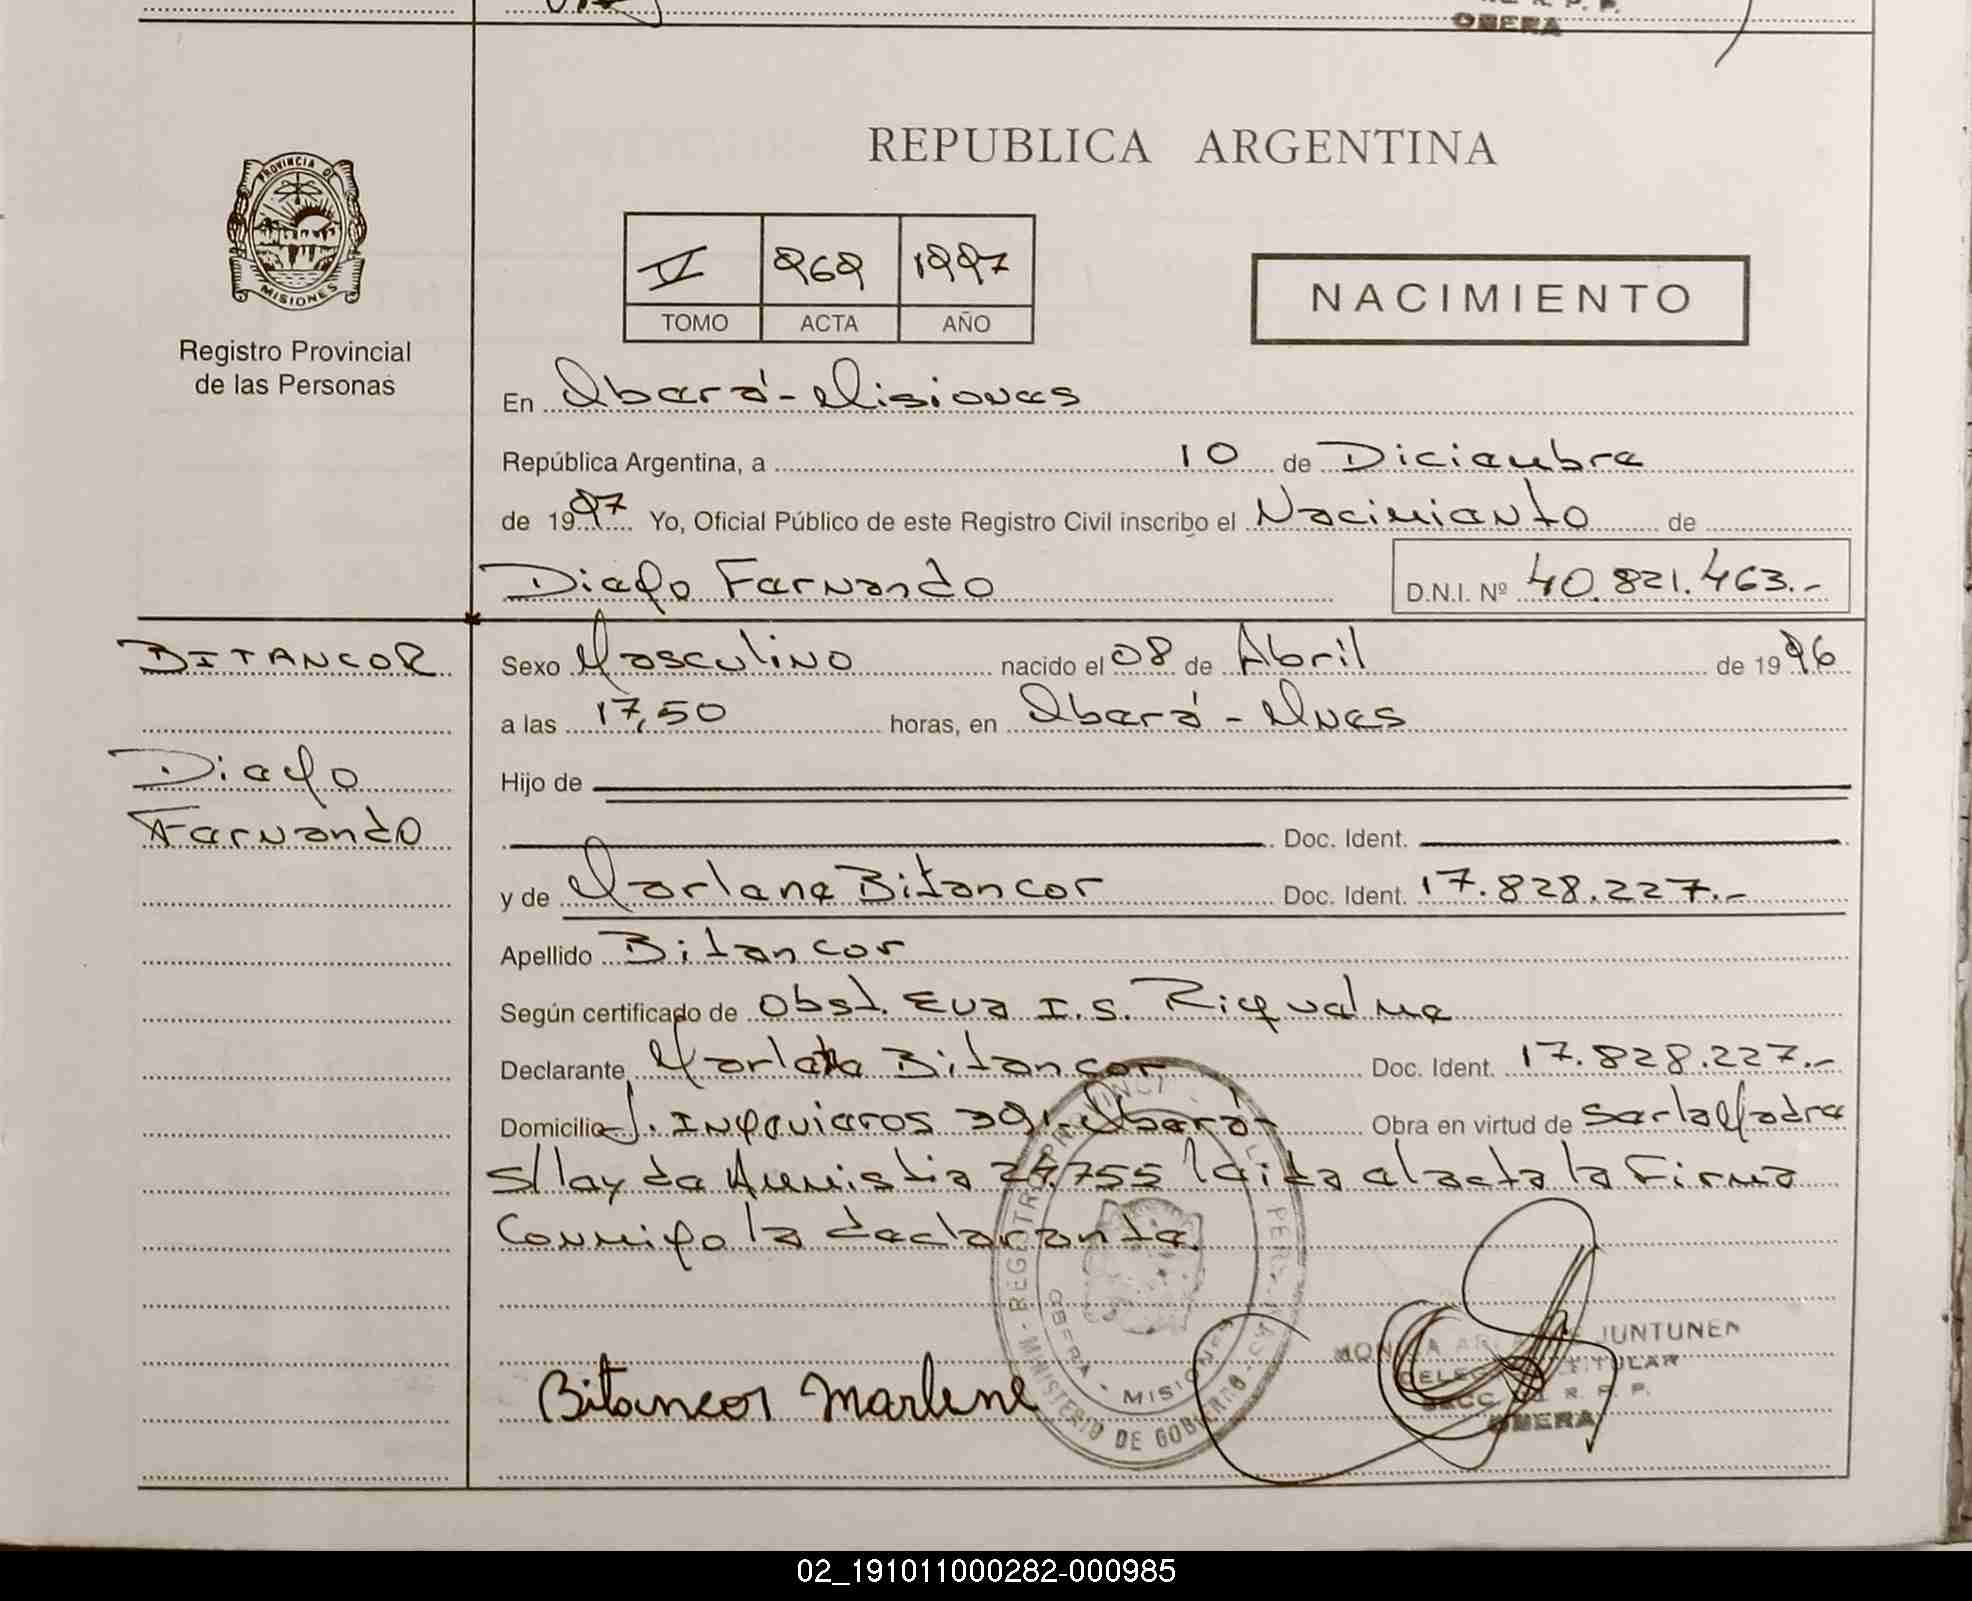 OBERA
REPUBLICA ARGENTINA
PROVINCIA DE
MISIONES
Registro Provincial
de las Personas
V 969 1997
TOMO ACTA AÑO
NACIMIENTO
En Oberá - Misiones
República Argentina, a 10 de Diciembre
de 1997 Yo, Oficial Público de este Registro Civil inscribo el Nacimiento de
Diego Fernando D.N.I. Nº 40.821.463.-
BITANCOR
Sexo Masculino nacido el 08 de Abril de 1996
a las 17,50 horas, en Oberá - Mnes
Diego
Hijo de
Fernando
Doc. Ident.
y de Marlene Bitancor Doc. Ident. 17.828.227.-
Apellido Bitancor
Según certificado de Obst. Eva I.S. Riquelme
Declarante Marlene Bitancor Doc. Ident. 17.828.227.-
Domicilio J. Ingenieros 391-Oberá- Obra en virtud de ser la Madre
s/ley de Amnistia 24.755 leida el acta la Firma
Conmigo la declarante.
REGISTRO PROVINCI
MINISTERIO DE GOBIERNO
OBERA - MISIONES
JUNTUNEN
TITULAR
R. P. P.
OBERA
Bitancor Marlene
02_191011000282-000985